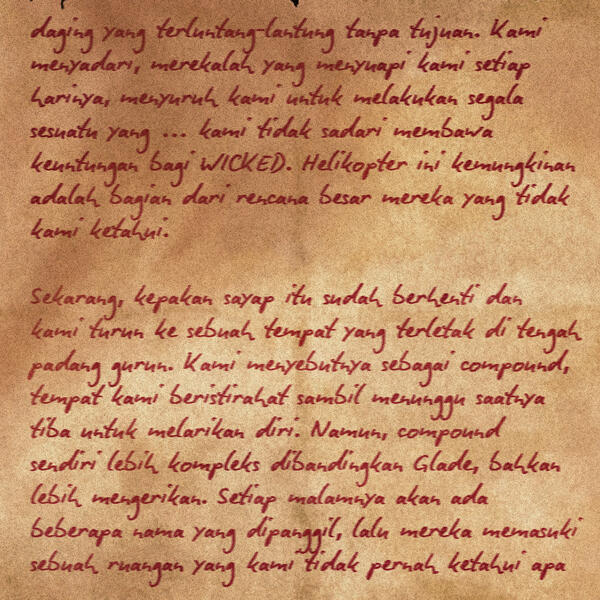 daging yang terluntang-lantung tanpa tujuan. Kami
menyadari, merekalah yang menyuapi kami setiap
harinya, menyuruh kami untuk melakukan segala
sesuatu yang ... kami tidak sadari membawa
keuntungan bagi WICKED. Helikopter ini kemungkinan
adalah bagian dari rencana besar mereka yang tidak
kami ketahui.
Sekarang, kepakan sayap itu sudah berhenti dan
kami turun ke sebuah tempat yang terletak di tengah
padang gurun. Kami menyebutnya sebagai compound,
tempat kami beristirahat sambil menunggu saatnya
tiba untuk melarikan diri. Namun, compound
sendiri lebih kompleks dibandingkan Glade, bahkan
lebih mengerikan. Setiap malamnya akan ada
beberapa nama yang dipanggil, lalu mereka memasuki
sebuah ruangan yang kami tidak pernah ketahui apa